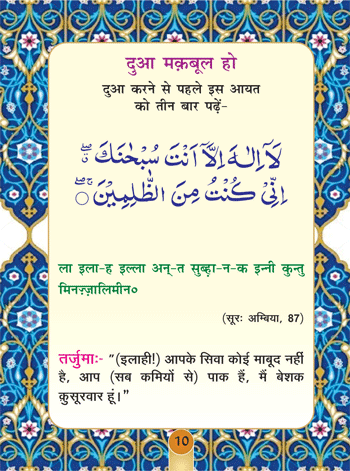 दुआ मक़बूल हो
दुआ करने से पहले इस आयत
को तीन बार पढ़ें-
لَآ اِلٰهَ اِلَّآ اَنْتَ سُبْحٰنَكَ ۖۗ
اِنِّىْ كُنْتُ مِنَ الظّٰلِمِيْنَ ۚۖ
ला इला-ह इल्ला अन्-त सुब्हा-न-क इन्नी कुन्तु
मिनज़्ज़ालिमीन०
(सूरः अम्बिया, 87)
तर्जुमाः- “(इलाही!) आपके सिवा कोई माबूद नहीं
है, आप (सब कमियों से) पाक हैं, मैं बेशक
क़ुसूरवार हूं।”
10